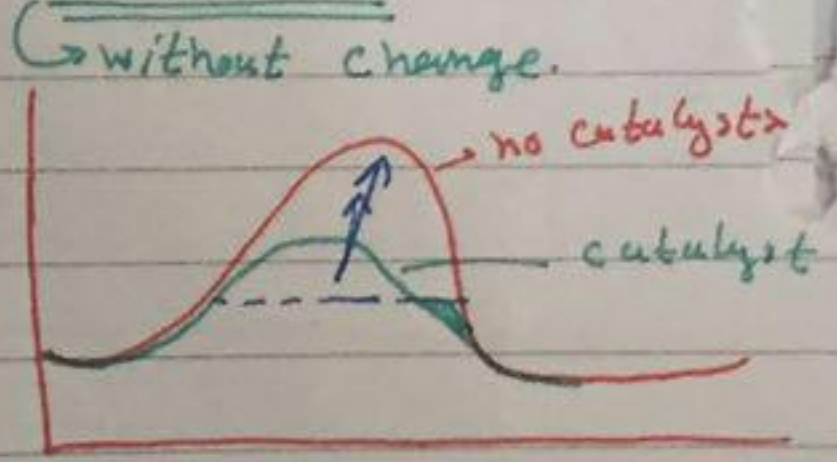 without change.
no catalysts
catalyst